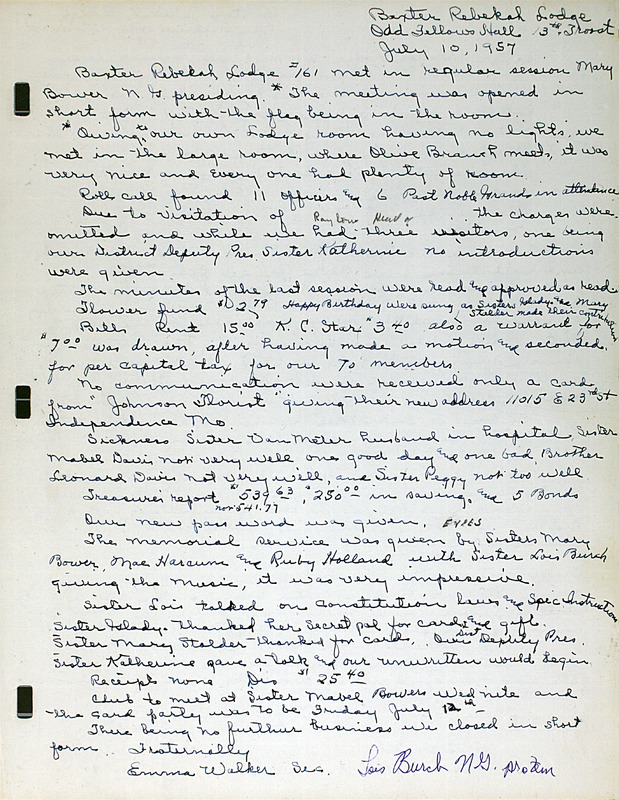 Baxter Rebekah Lodge
Odd Fellows Hall 13th Troost
July 10, 1957
Baxter Rebekah Lodge #161 met in regular session Mary
Bower N G presiding. * The meeting was opened in
short form with the flag being in the room.
* Owing to our own Lodge room having no lights, we
met in the large room, where Olive Branch meets, it was
very nice and every one had plenty of room.
Roll call found 11 officers & 6 Past Noble Grands in attendance
Due to visitation of the charges were
omitted and while we had three visitors, one being
our District Deputy Pres Sister Katherine no introductions
were given
The minutes of the last session were read & approved as read
Flower fund $2.79 Happy Birthday were sung as Sisters & Mary
made their contribution
Bills Rent 15.00 K. C. Star 3.40 also a warrant for
$7.00 was drawn, after having made a motion & seconded
for per capital tax for our 70 members.
No communication were received only a card
from "Johnson Florist" giving their new address 11015 E 23rd St
Independence Mo.
Sickness Sister Van Meter husband in hospital, Sister
Mabel Davis not very well one good day & one bad, Brother
Leonard Davis not very well, and Sister Peggy not too well
Treasure's report $539.63, $250.00 in saving, & 5 Bonds
now 541.79
Our new pass word was given, EYRES
The memorial service was given by Sisters Mary
Bower, Mae & Ruby Holland with Sister Lois Burch
giving the music, it was very impressive.
Sister Lois talked on constitution laws & Spec Instruction
Sister thanked her Secret pal for cards & gift.
Sister Mary Stalder thanked for cards. Our Dist Deputy Pres.
Sister Katherine gave a talk & our unwritten would begin
Receipts none Dis $25.40
Club to meet at Sister Mabel Bowers Wed nite and
the card party was to be Friday July 12th
There being no further business we closed in short
form. Fraternally
Emma Walker Sec. Lois Burch N.G. protem